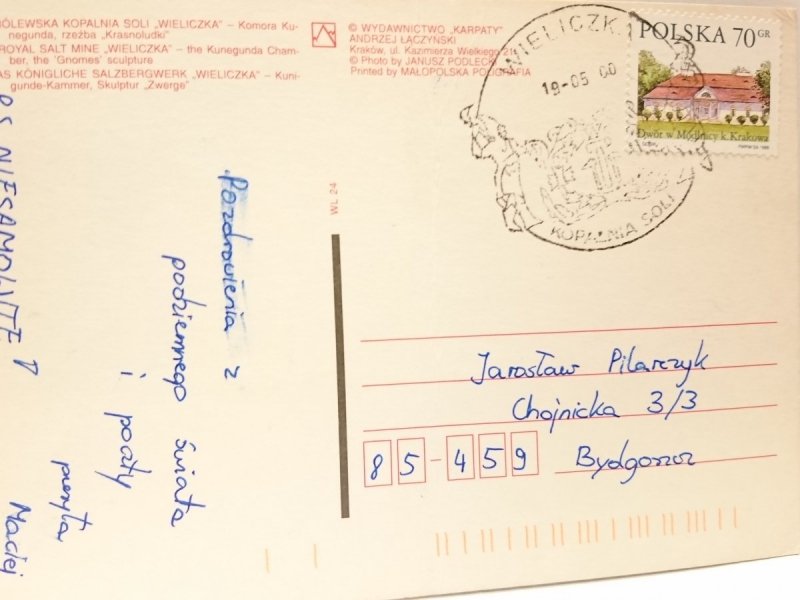 ÓLEWSKA KOPALNIA SOLI „WIELICZKA” – Komora Ku-
negunda, rzeźba „Krasnoludki”
ROYAL SALT MINE „WIELICZKA” – the Kunegunda Cham-
ber, the 'Gnomes' sculpture
AS KÖNIGLICHE SALZBERGWERK „WIELICZKA” – Kuni-
gunde-Kammer, Skulptur „Zwerge”
© WYDAWNICTWO „KARPATY”
ANDRZEJ ŁĄCZYŃSKI
Kraków, ul. Kazimierza Wielkiego 21
© Photo by JANUSZ PODLECKI
Printed by MAŁOPOLSKA POLIGRAFIA
WIELICZKA
19-05 00
KOPALNIA SOLI
POLSKA 70 GR
Dwór w Modlnicy k. Krakowa
WL 24
Pozdrowienia z
podziemnego świata
i poczty
przesyła
Maciej
PS NIESAMOWITE!
Jarosław Pilarczyk
Chojnicka 3/3
85-459
Bydgoszcz